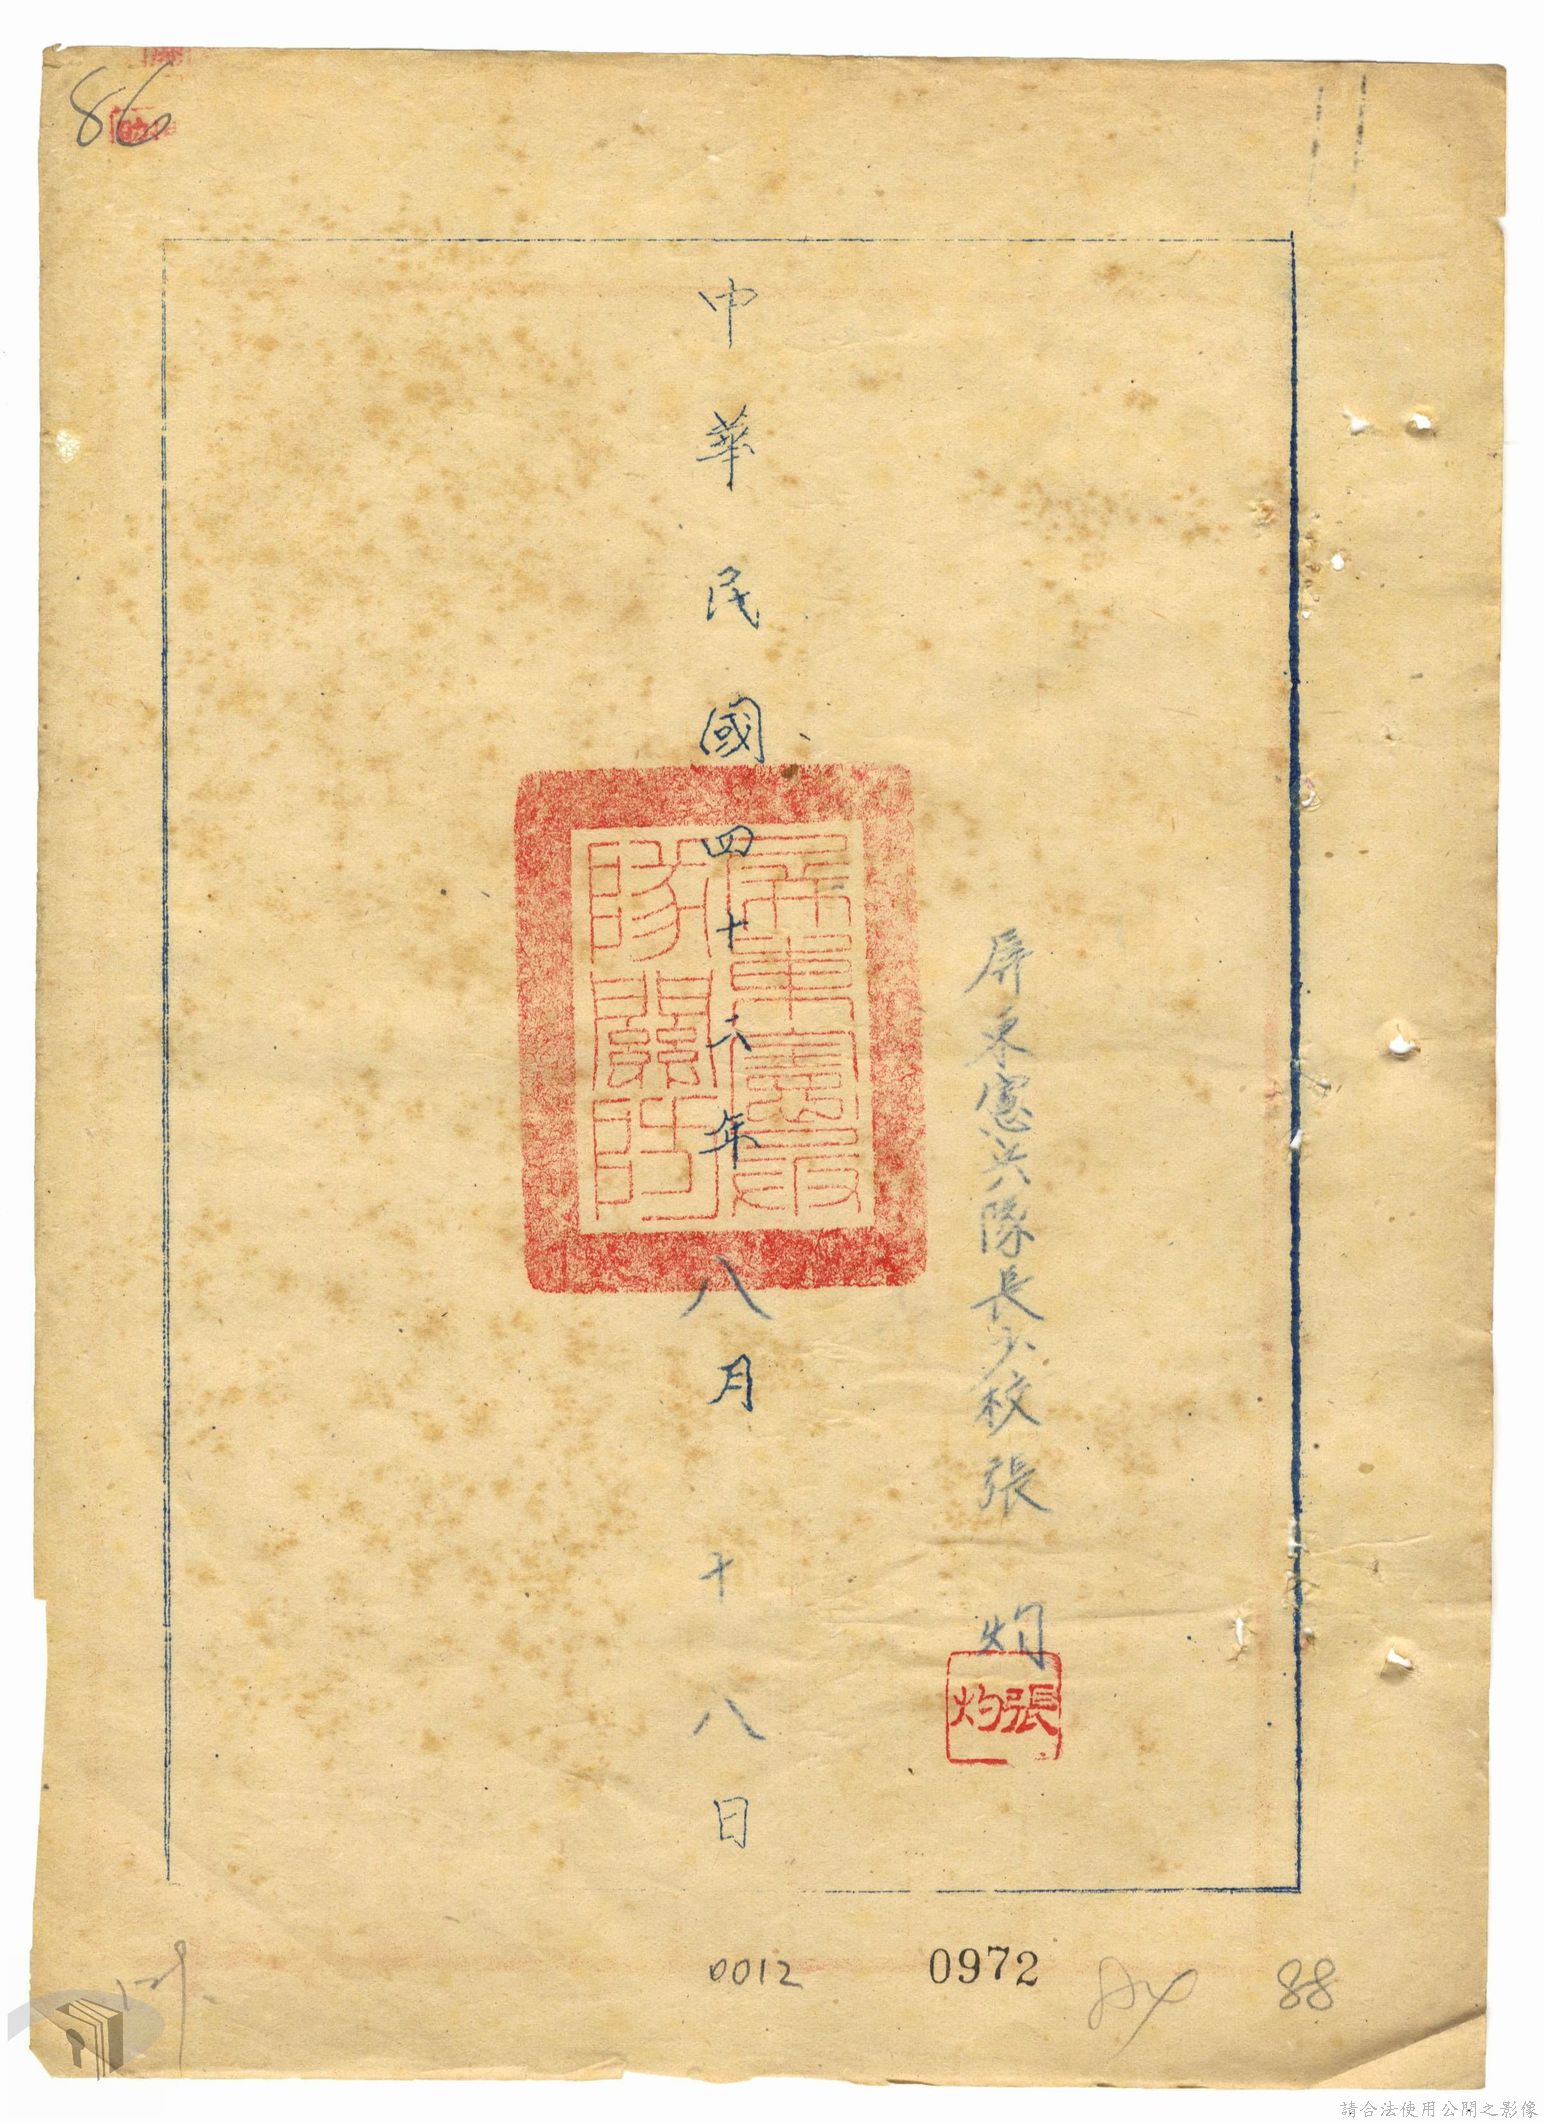 86
屏東憲兵隊長少校張 灼
張灼
中華民國四十六年八月十八日
屏東憲兵
隊關防
0012
0972
88
請合法使用公開之影像